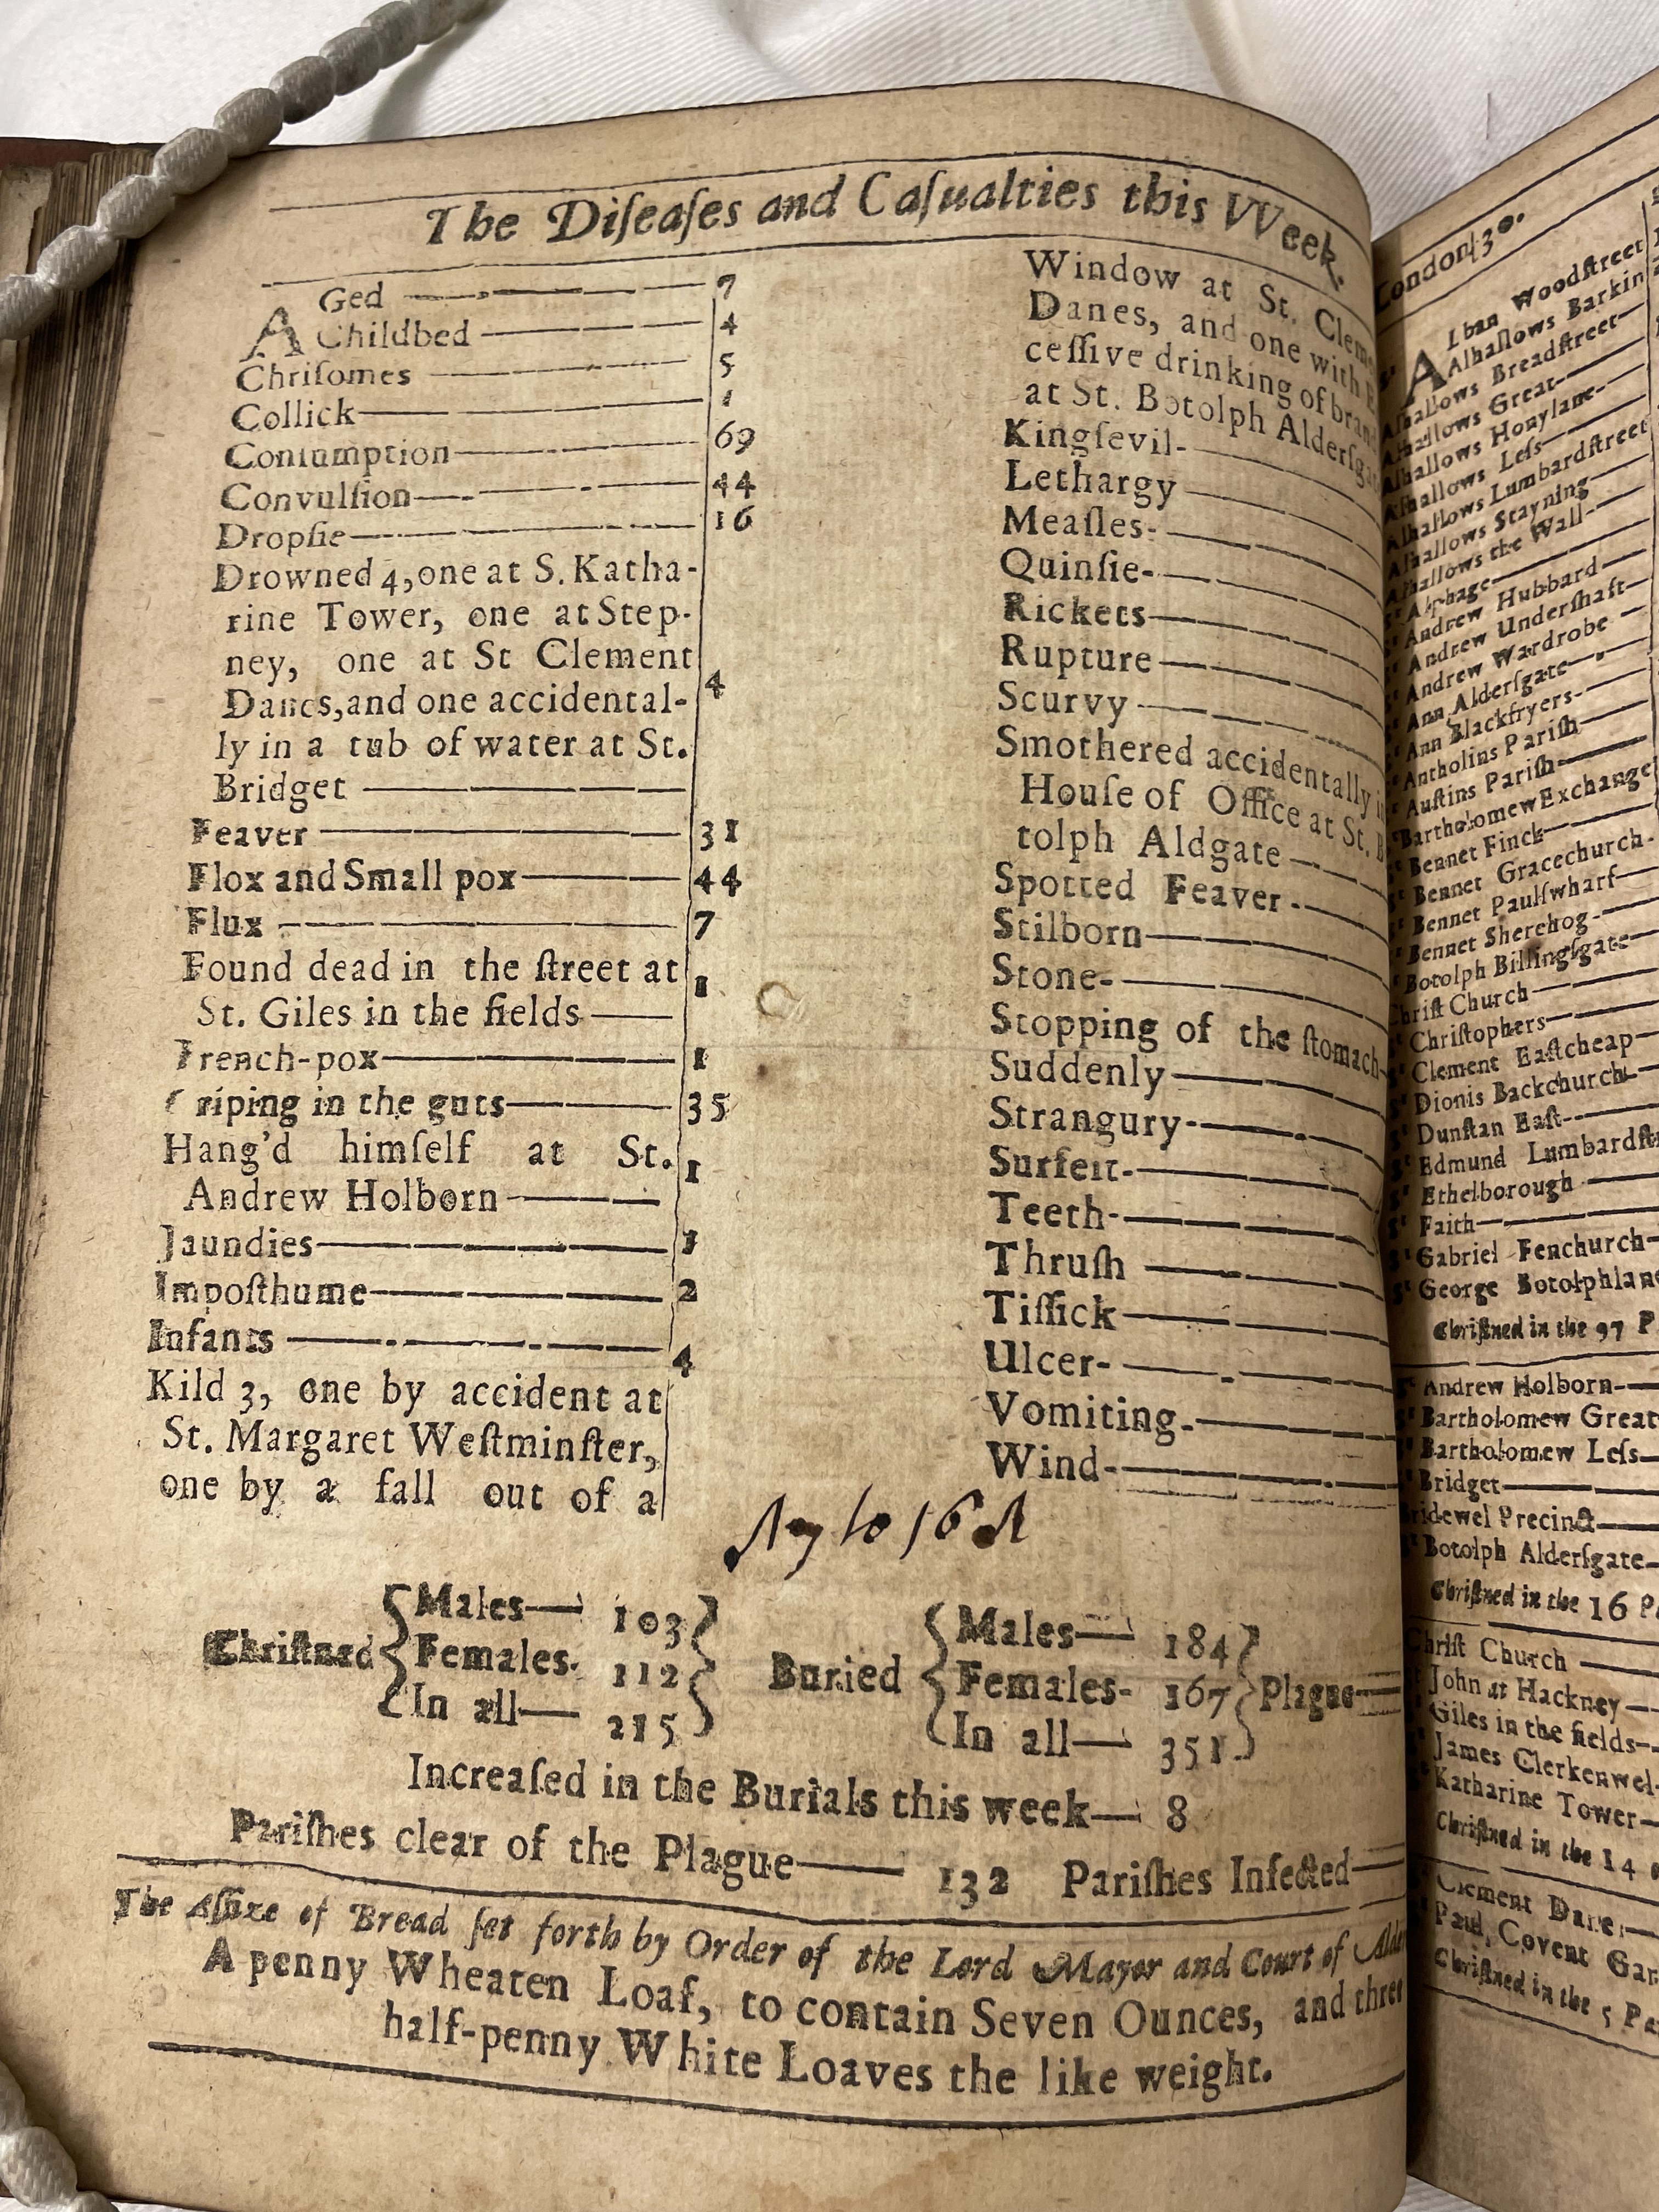 The Diſeaſes and Caſualties this VVeek.
AGed 7
Childbed 4
Chriſomes 5
Collick 1
Conſumption 69
Convulſion 44
Dropſie 16
Drowned 4, one at S. Katha-
rine Tower, one at Step-
ney, one at St Clement
Danes, and one accidental-
ly in a tub of water at St.
Bridget 4
Feaver 31
Flox and Small pox 44
Flux 7
Found dead in the ſtreet at
St. Giles in the fields 1
French-pox 1
Griping in the guts 35
Hang'd himſelf at St.
Andrew Holborn 1
Jaundies 1
Impoſthume 2
Infants 4
Kild 3, one by accident at
St. Margaret Weſtminſter,
one by a fall out of a
Window at St. Cleme
Danes, and one with
ceſſive drinking of bran
at St. Botolph Alderſga
Kingſevil
Lethargy
Meaſles
Quinſie
Rickets
Rupture
Scurvy
Smothered accidentally
Houſe of Office at St. B
tolph Aldgate
Spotted Feaver
Stilborn
Stone
Stopping of the ſtomach
Suddenly
Strangury
Surfeit
Teeth
Thruſh
Tiſſick
Ulcer
Vomiting
Wind
16
Chriſtned Males 103
Females 112
In all 215
Buried Males 184
Females 167
In all 351
Plague
Increaſed in the Burials this week 8
Pariſhes clear of the Plague 132 Pariſhes Infected
The Aſſize of Bread ſet forth by Order of the Lord Mayor and Court of Alder
A penny Wheaten Loaf, to contain Seven Ounces, and three
half-penny White Loaves the like weight.
London 30.
Alban Woodſtreet
Alhallows Barkin
Alhallows Breadſtreet
Alhallows Great
Alhallows Honylane
Alhallows Leſs
Alhallows Lumbardſtreet
Alhallows Stayning
Alhallows the Wall
Alphage
Andrew Hubbard
Andrew Underſhaft
Andrew Wardrobe
Ann Alderſgate
Ann Blackfryers
Antholins Pariſh
Auſtins Pariſh
Bartholomew Exchange
Bennet Finck
Bennet Gracechurch
Bennet Paulſwharf
Bennet Sherehog
Botolph Billingſgate
Chriſt Church
Chriſtophers
Clement Eaſtcheap
Dionis Backchurch
Dunſtan Eaſt
Edmund Lumbardſtr
Ethelborough
Faith
Gabriel Fenchurch
George Botolphlane
Chriſtned in the 97 P
Andrew Holborn
Bartholomew Great
Bartholomew Leſs
Bridget
Bridewel Precinct
Botolph Alderſgate
Chriſtned in the 16 Pa
Chriſt Church
John at Hackney
Giles in the fields
James Clerkenwel
Katharine Tower
Chriſtned in the 14
Clement Danes
Paul, Covent Gar
Chriſtned in the 5 Pa